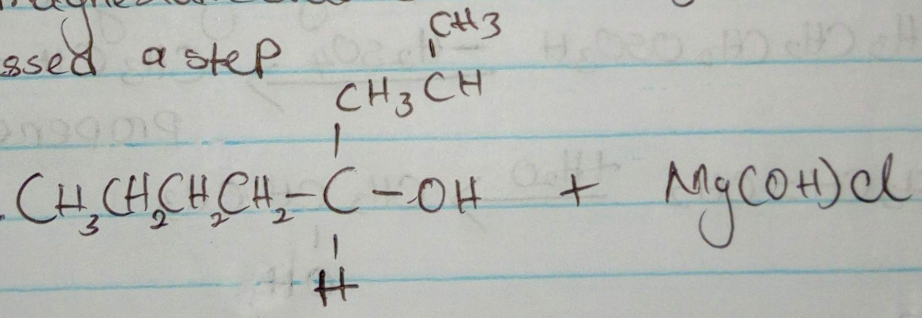 ssed a step
CH3
CH3CH
CH3CH2CH2CH2-C-OH + Mg(OH)Cl
H